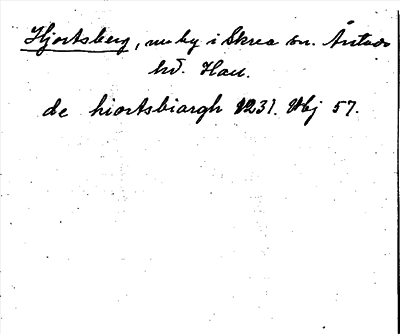 Hjortsberg, nu by i Skrea sn. Årstads
hd. Hall.
de hiortsbiargh 1231. Vbj 57.